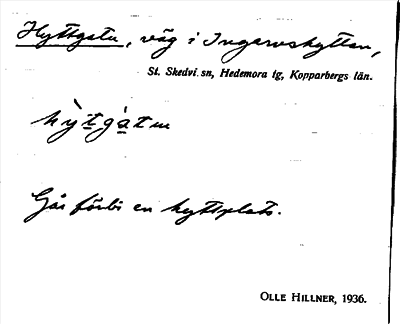 Hyttgatu, väg i Ingarvshyttan,
St. Skedvi sn, Hedemora tg, Kopparbergs län.
hỳt̲gàt̲ɯ
Går förbi en hyttplats.
OLLE HILLNER, 1936.